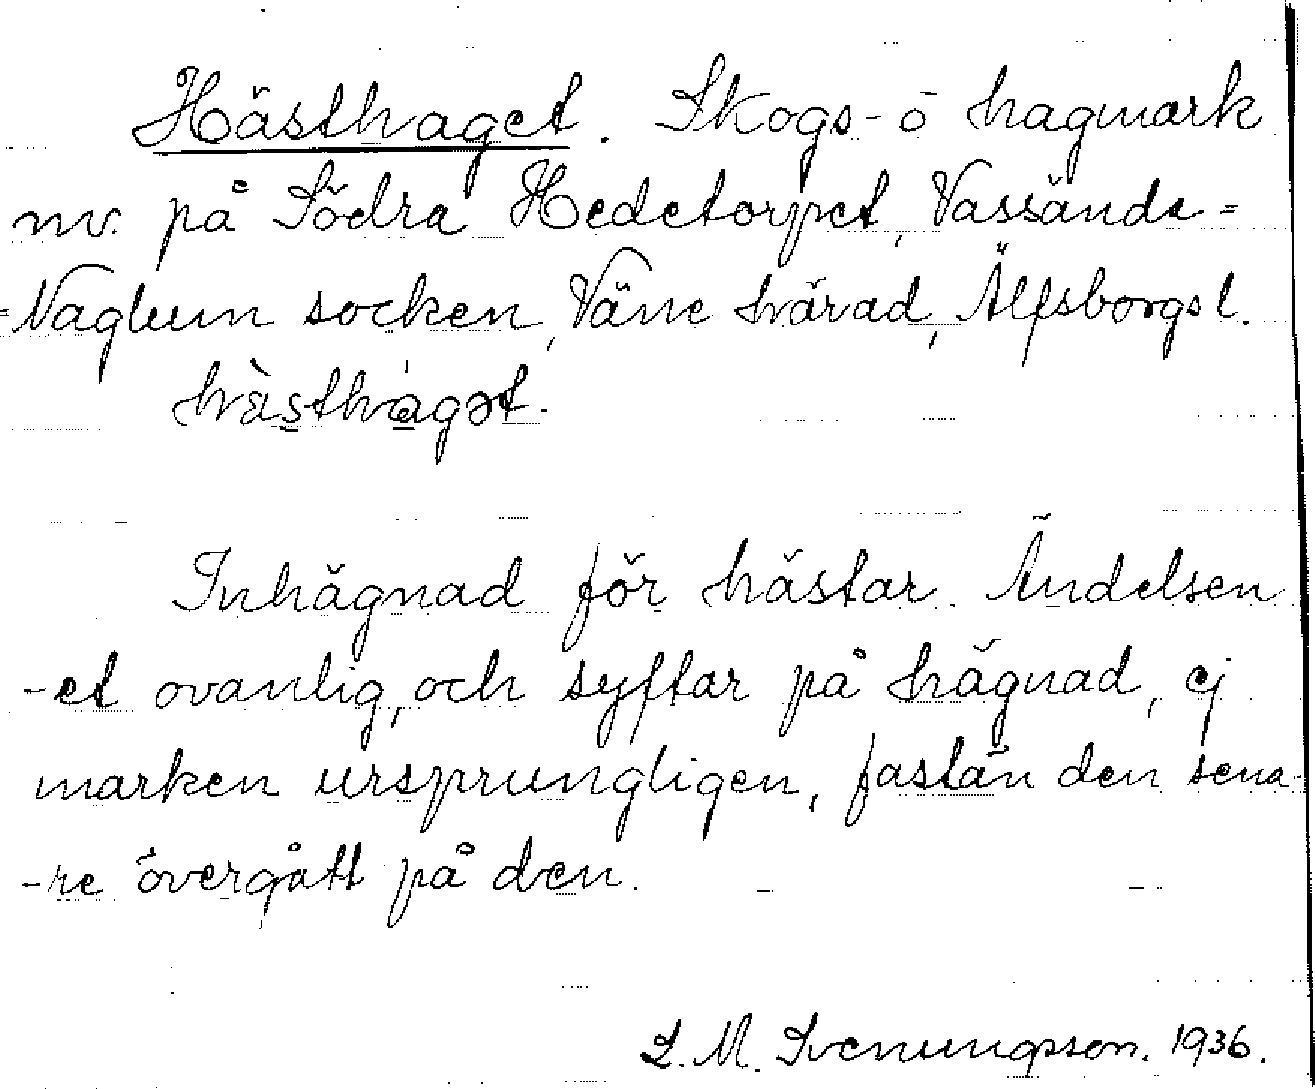 Hästhaget. Skogs- o hagmark
nv. på Södra Hedetorpet, Vassända=
=Naglum socken, Väne härad, Älfsborgs l.
hà̀sthágət.
Inhägnad för hästar. Ändelsen
-et ovanlig, och syftar på hägnad, ej
marken ursprungligen, fastän den sena-
-re övergått på den.
L. M. Svenungsson. 1936.